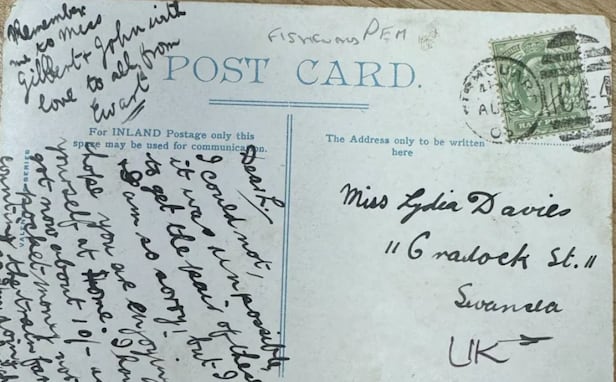 Remember
me to Miss
Gilbert & John with
love to all from
Ewart
FISHGUARD PEM
POST CARD.
For INLAND Postage only this
space may be used for communication.
The Address only to be written
here
Dear L,
I could not,
it was impossible
to get the pair of these
I am so sorry, but I
hope you are enjoying
yourself at Home. I have
got now about 10/- a
pocket money not
counting the train far
Miss Lydia Davies
"Cradock St."
Swansea
UK
SERIES
AU 23